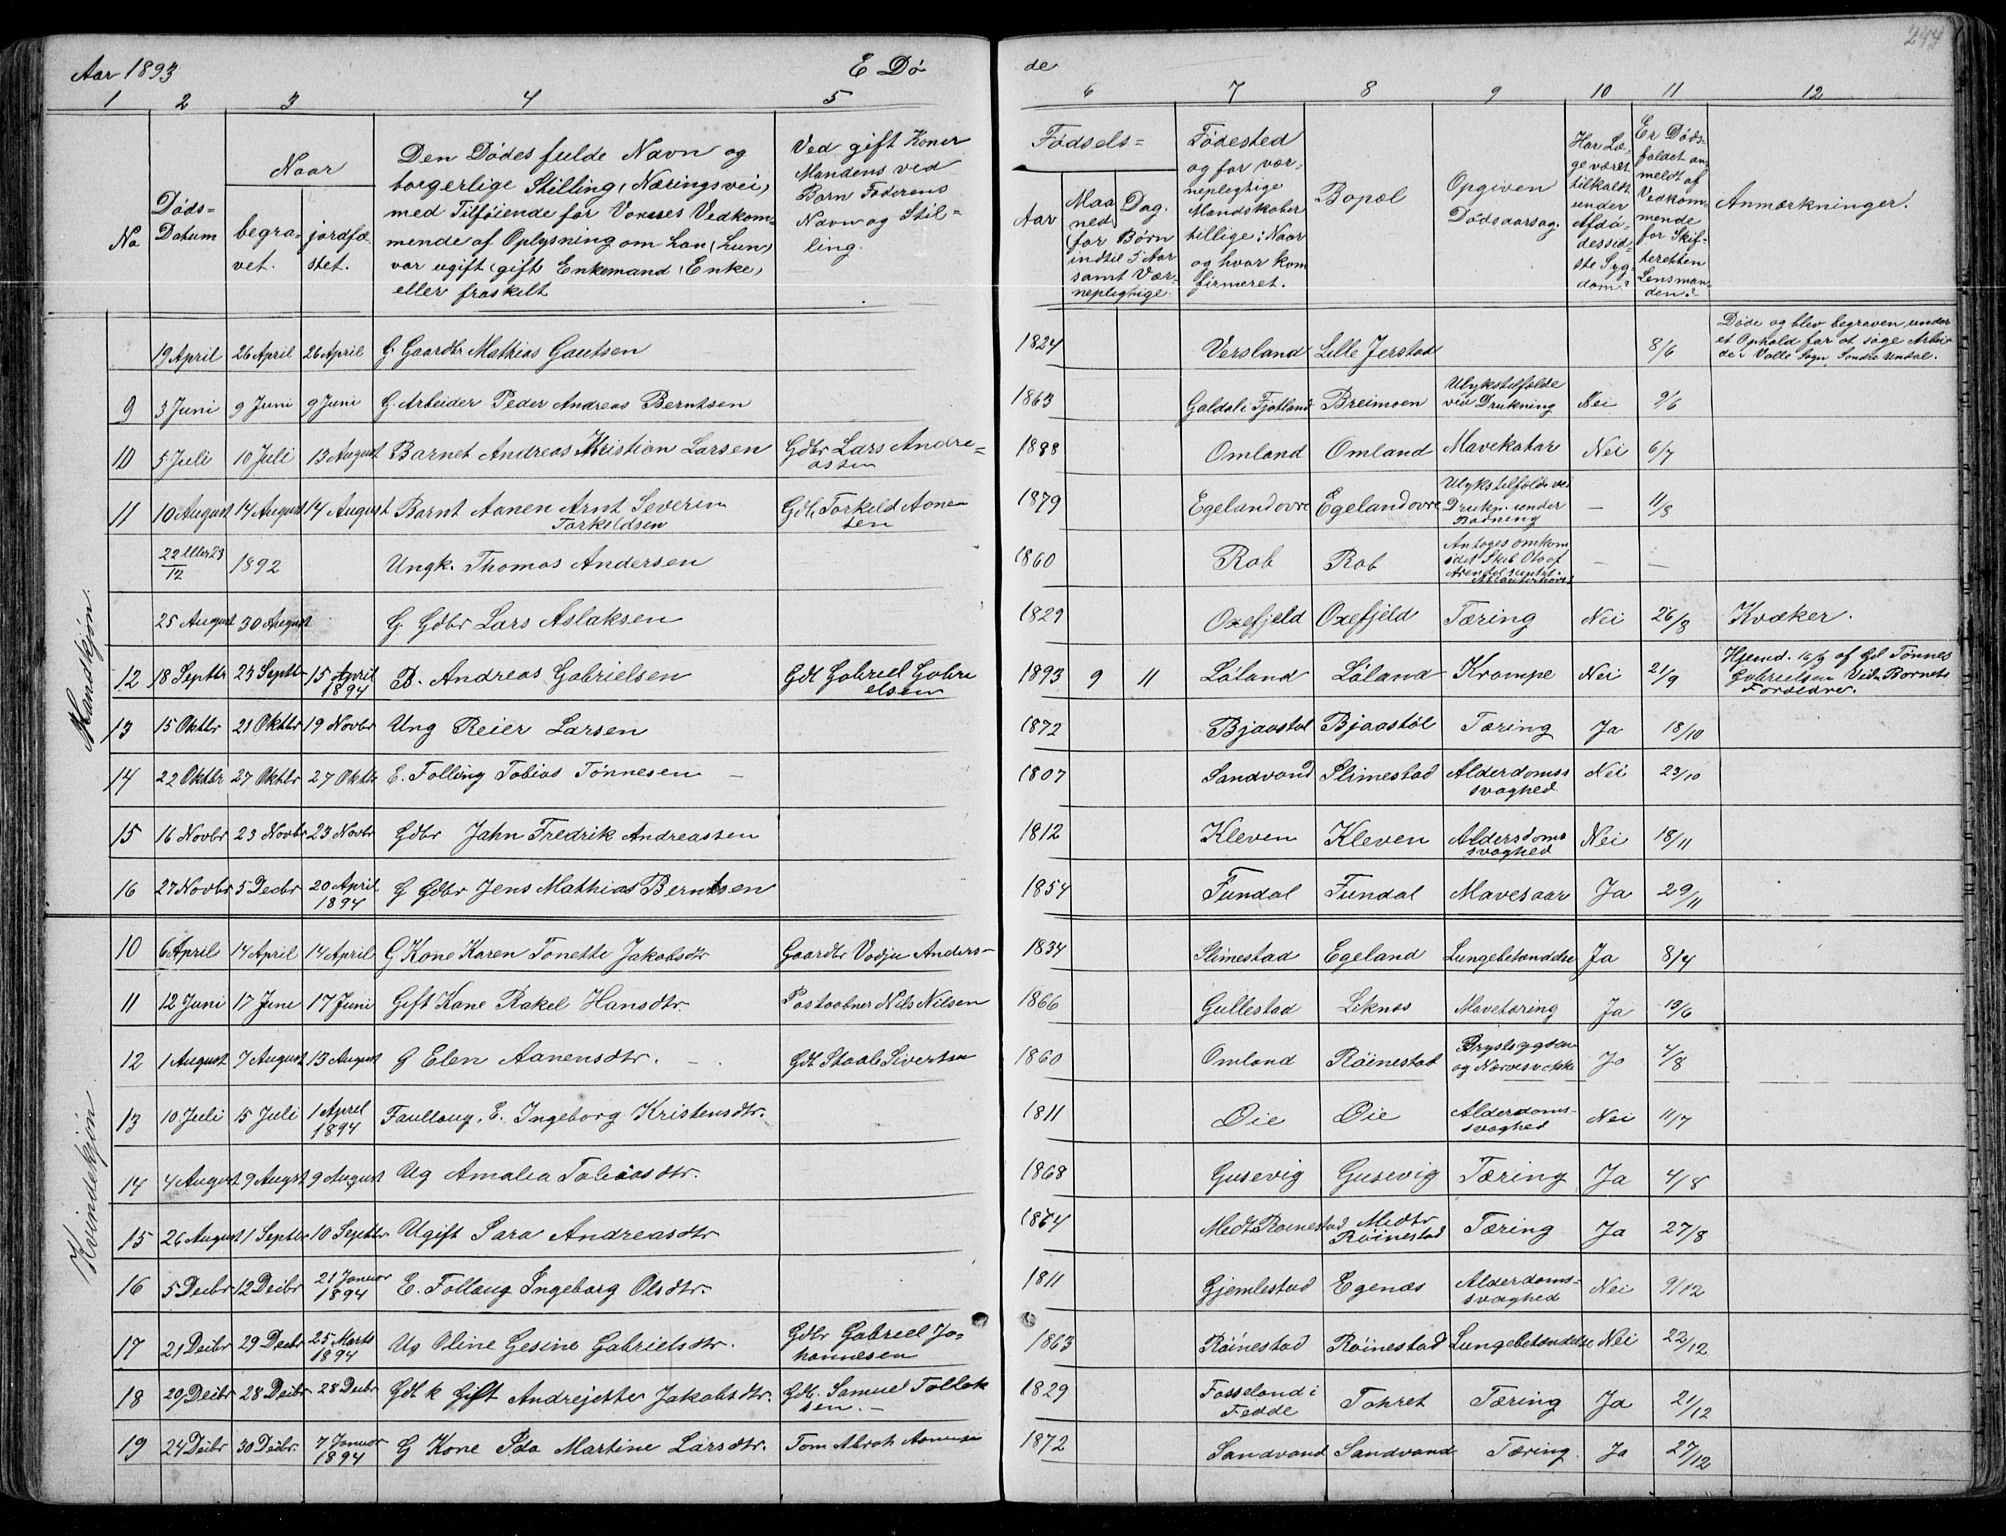 244
Aar 1893 E Dø de
1 2 3 4 5 6 7 8 9 10 11 12
No
Døds=
Datum
Naar
begra-
vet.
jordfæ-
stet.
Den Dødes fulde Navn og
borgerlige Stilling (Næringsvei)
med Tilføiende for Voxnes Vedkom-
mende af Oplysning om han (hun)
var ugift (gift Enkemand (Enke)
eller fraskilt
Ved gift Koner
Mandens ved
Barn Faderens
Navn og Stil-
ling.
Fødsels=
Aar
Maa
ned
Dag.
(for Børn
indtil 5 Aar
samt Vær-
nepligtige.
Fødested
og for vær-
nepligtige
Mandskaber
tillige: Naar
og hvor kon
firmeret.
Bopæl
Opgiven
Dødsaarsag.
Har Læ-
ge været
tilkaldt
under
Afdø-
dessid-
ste Syg-
dom?
Er Døds-
faldet an
meldt af
Vedkom-
mende
for Skif-
teretten
Lensman-
den?
Anmærkninger.
Mandskjøn.
19 April 26 April 26 April G. Gaardbr Mathias Gautsen 1824 Versland Lille Jerstad 8/6 Døde og blev begraven under
et Ophold for at søge Arbei
de i Valle Sogn, Søndre Undal.
9 3 Juni 9 Juni 9 Juni G. Arbeider Peder Andreas Berntsen 1863 Galdal i Fjotland Breimoen Ulykstilfælde
ved Drukning Nei 9/6
10 5 Juli 10 Juli 13 August Barnet Andreas Kristian Larsen Gdbr Lars Andre=
assen 1888 Omland Omland Mavekatar Nei 6/7
11 10 August 14 August 14 August Barnt Aanen Arnt Severin
Torkildsen Gdb Torkild Aanen
sen 1879 Egeland øvre Egeland øvre Ulykstilfælde ved
Drukn. under
Badning — 11/8
22 eller 23
/12 1892 Ungk. Thomas Andersen 1860 Rab Rab Antages omkom
Skib Oto af
Arendal — —
25 August 30 August G. Gdbr Lars Aslaksen 1829 Oxefjeld Oxefjeld Tæring Nei 26/8 Kvæker.
12 18 Septbr 23 Septbr 15 April
1894 B. Andreas Gabrielsen Gdb Gabriel Gabri
elsen 1893 9 11 Løland Løland Krampe Nei 21/9 Hjemd. 16/9 af Gd Tønnes
Gabrielsen Vidn Barnets
Forældre.
13 15 Oktbr 21 Oktbr 19 Novbr Ung Reier Larsen 1872 Bjaastøl Bjaastøl Tæring Ja 18/10
14 22 Oktbr 27 Oktbr 27 Oktbr E. Follug Tobias Tønnesen — 1807 Sandvand Slimestad Alderdomss
svaghed Nei 23/10
15 16 Novbr 23 Novbr 23 Novbr Gdbr Jahn Fredrik Andreassen 1812 Kleven Kleven Aldersdoms
svaghed Nei 18/11
16 27 Novbr 5 Decbr 20 April
1894 G Gdbr Jens Mathias Berntsen 1854 Fundal Fundal Mavesaar Ja 29/11
Kvindekjøn.
10 6 April 14 April 14 April G Kone Karen Tonette Jakobsdtr Gaardbr Vodju Anders- 1834 Slimestad Egeland Lungebetændelse Ja 8/4
11 12 Juni 17 Juni 17 Juni Gift Kone Rakel Hansdtr. Postaabner Nils Nilsen 1866 Gullestad Liknes Mavetæring Ja 13/6
12 1 August 7 August 13 August G Elen Aanensdtr. Gdb Staale Sivertsen 1860 Omland Røinestad Brystsygdom
og Nervesvække Ja 4/8
13 10 Juli 15 Juli 1 April
1894 Faullaug. E. Ingeborg Kristensdtr. 1811 Øie Øie Alderdoms-
svaghed Nei 11/7
14 4 August 9 August 9 August Ug Amalia Tobiasdtr. 1868 Gusevig Gusevig Tæring Ja 4/8
15 26 August 1 Septbr 10 Septbr Ugift Sara Andreasdtr 1874 Midt Røinestad Midtr
Røinestad Tæring Ja 27/8
16 5 Decbr 12 Decbr 21 Januar
1894 E. Follaug Ingeborg Olsdtr. 1811 Gjemlestad Egenæs Alderdoms=
svaghed Nei 9/12
17 21 Decbr 29 Decbr 25 Marts
1894 Ug Oline Gesine Gabrielsdtr. Gdbr Gabriel Jo-
hannesen 1863 Røinestad Røinestad Lungebetændelse Nei 22/12
18 20 Decbr 28 Decbr 28 Decbr Gdb k Gift Andrejette Jakobsdtr. Gdb. Samuel Tollak
sen. — 1829 Fosseland i
Fedde Tahret Tæring Ja 21/12
19 24 Decbr 30 Decbr. 7 Januar
1894 G Kone Ida Martine Larsdtr. Tom Abrah Asmun 1872 Sandvand Sandvand Tæring. Ja 27/12